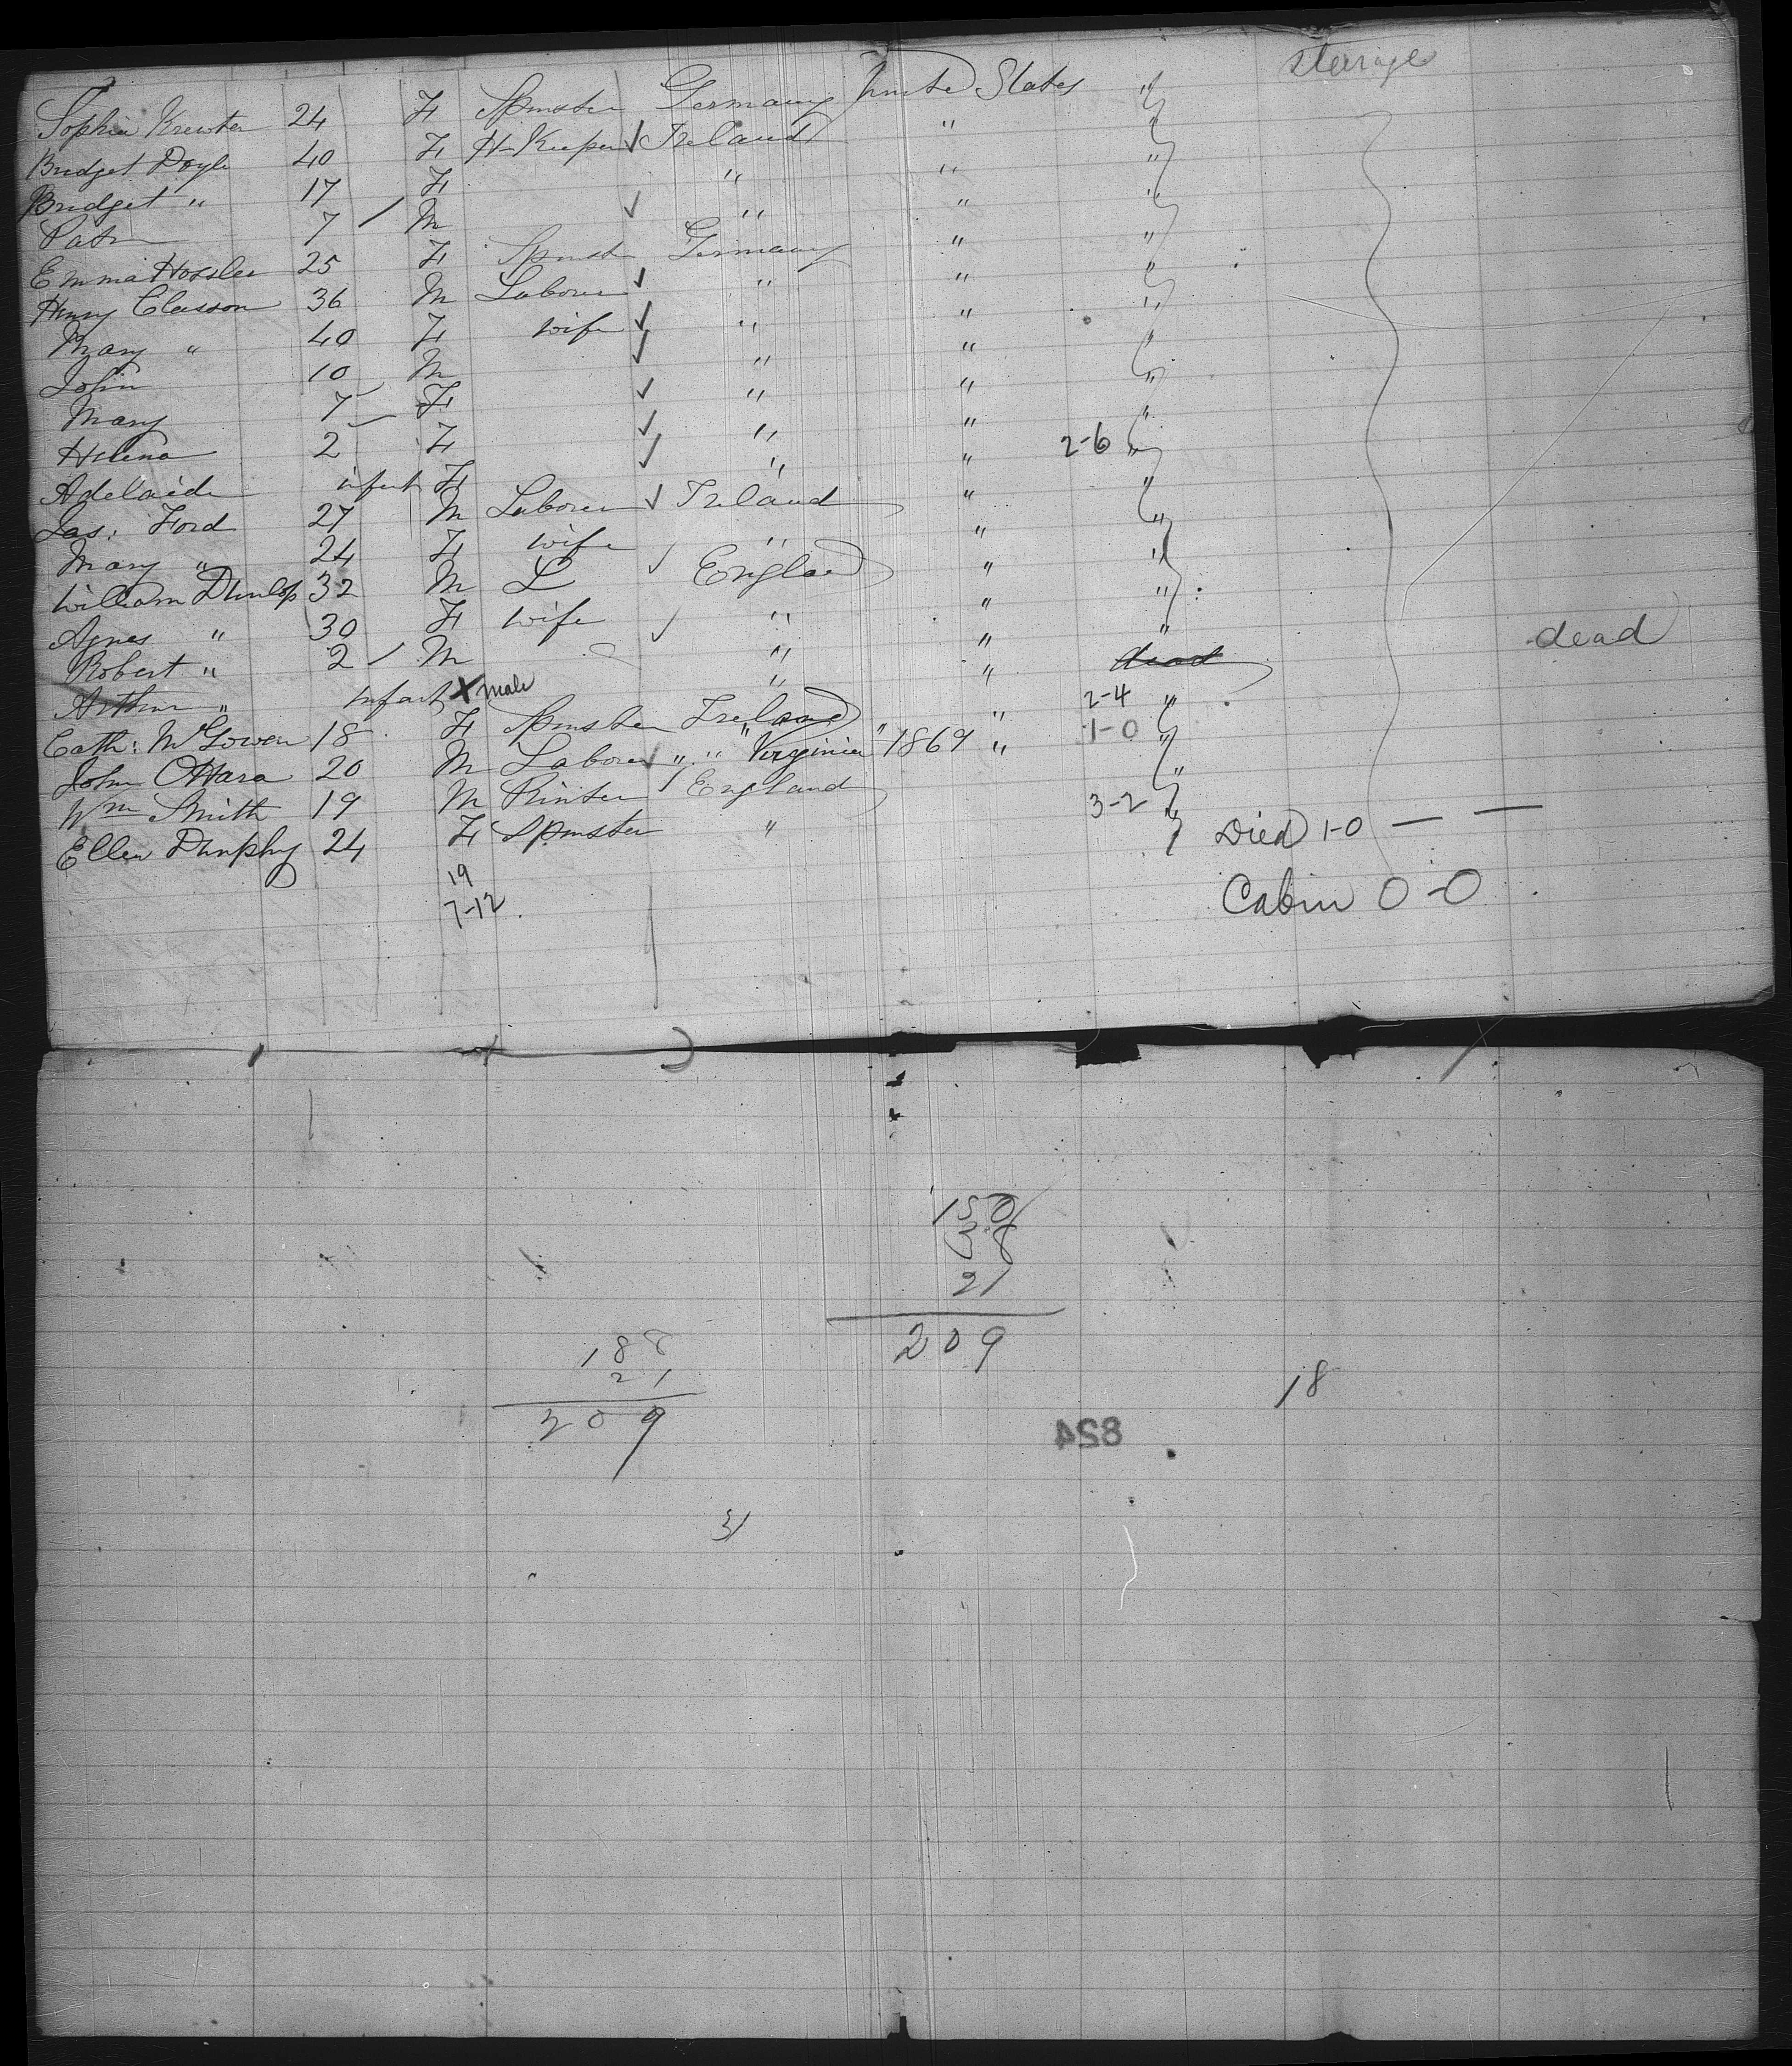 steerage
Sophia Krewter 24 F Spinster Germany United States "
Bridget Doyle 40 F H-Keeper Ireland " "
Bridget " 17 F " " "
Patr 7 M " " "
Emma Hossler 25 F Spinster Germany " "
Henry Classon 36 M Laborer " " "
Mary " 40 F wife " " "
John 10 M " " "
Mary 7 F " " "
Helena 2 F " " "
Adelaide infant F " " 2-6 "
Jas: Ford 27 M Laborer Ireland " "
Mary " 24 F wife " " "
William Dunlop 32 M L England " "
Agnes " 30 F wife " " "
Robert " 2 M " " "
Arthur " infant X male " " dead dead
Cath: McGowen 18 F Spinster Ireland " 2-4 "
John OHara 20 M Laborer " " "Virginia" 1869 " 1-0 "
Wm Smith 19 M Printer England "
Ellen Dunphy 24 F Spinster " 3-2 "
Died 1-0 — —
19
7-12
Cabin 0-0
150
38
21
209
188
21
209
18
824
31